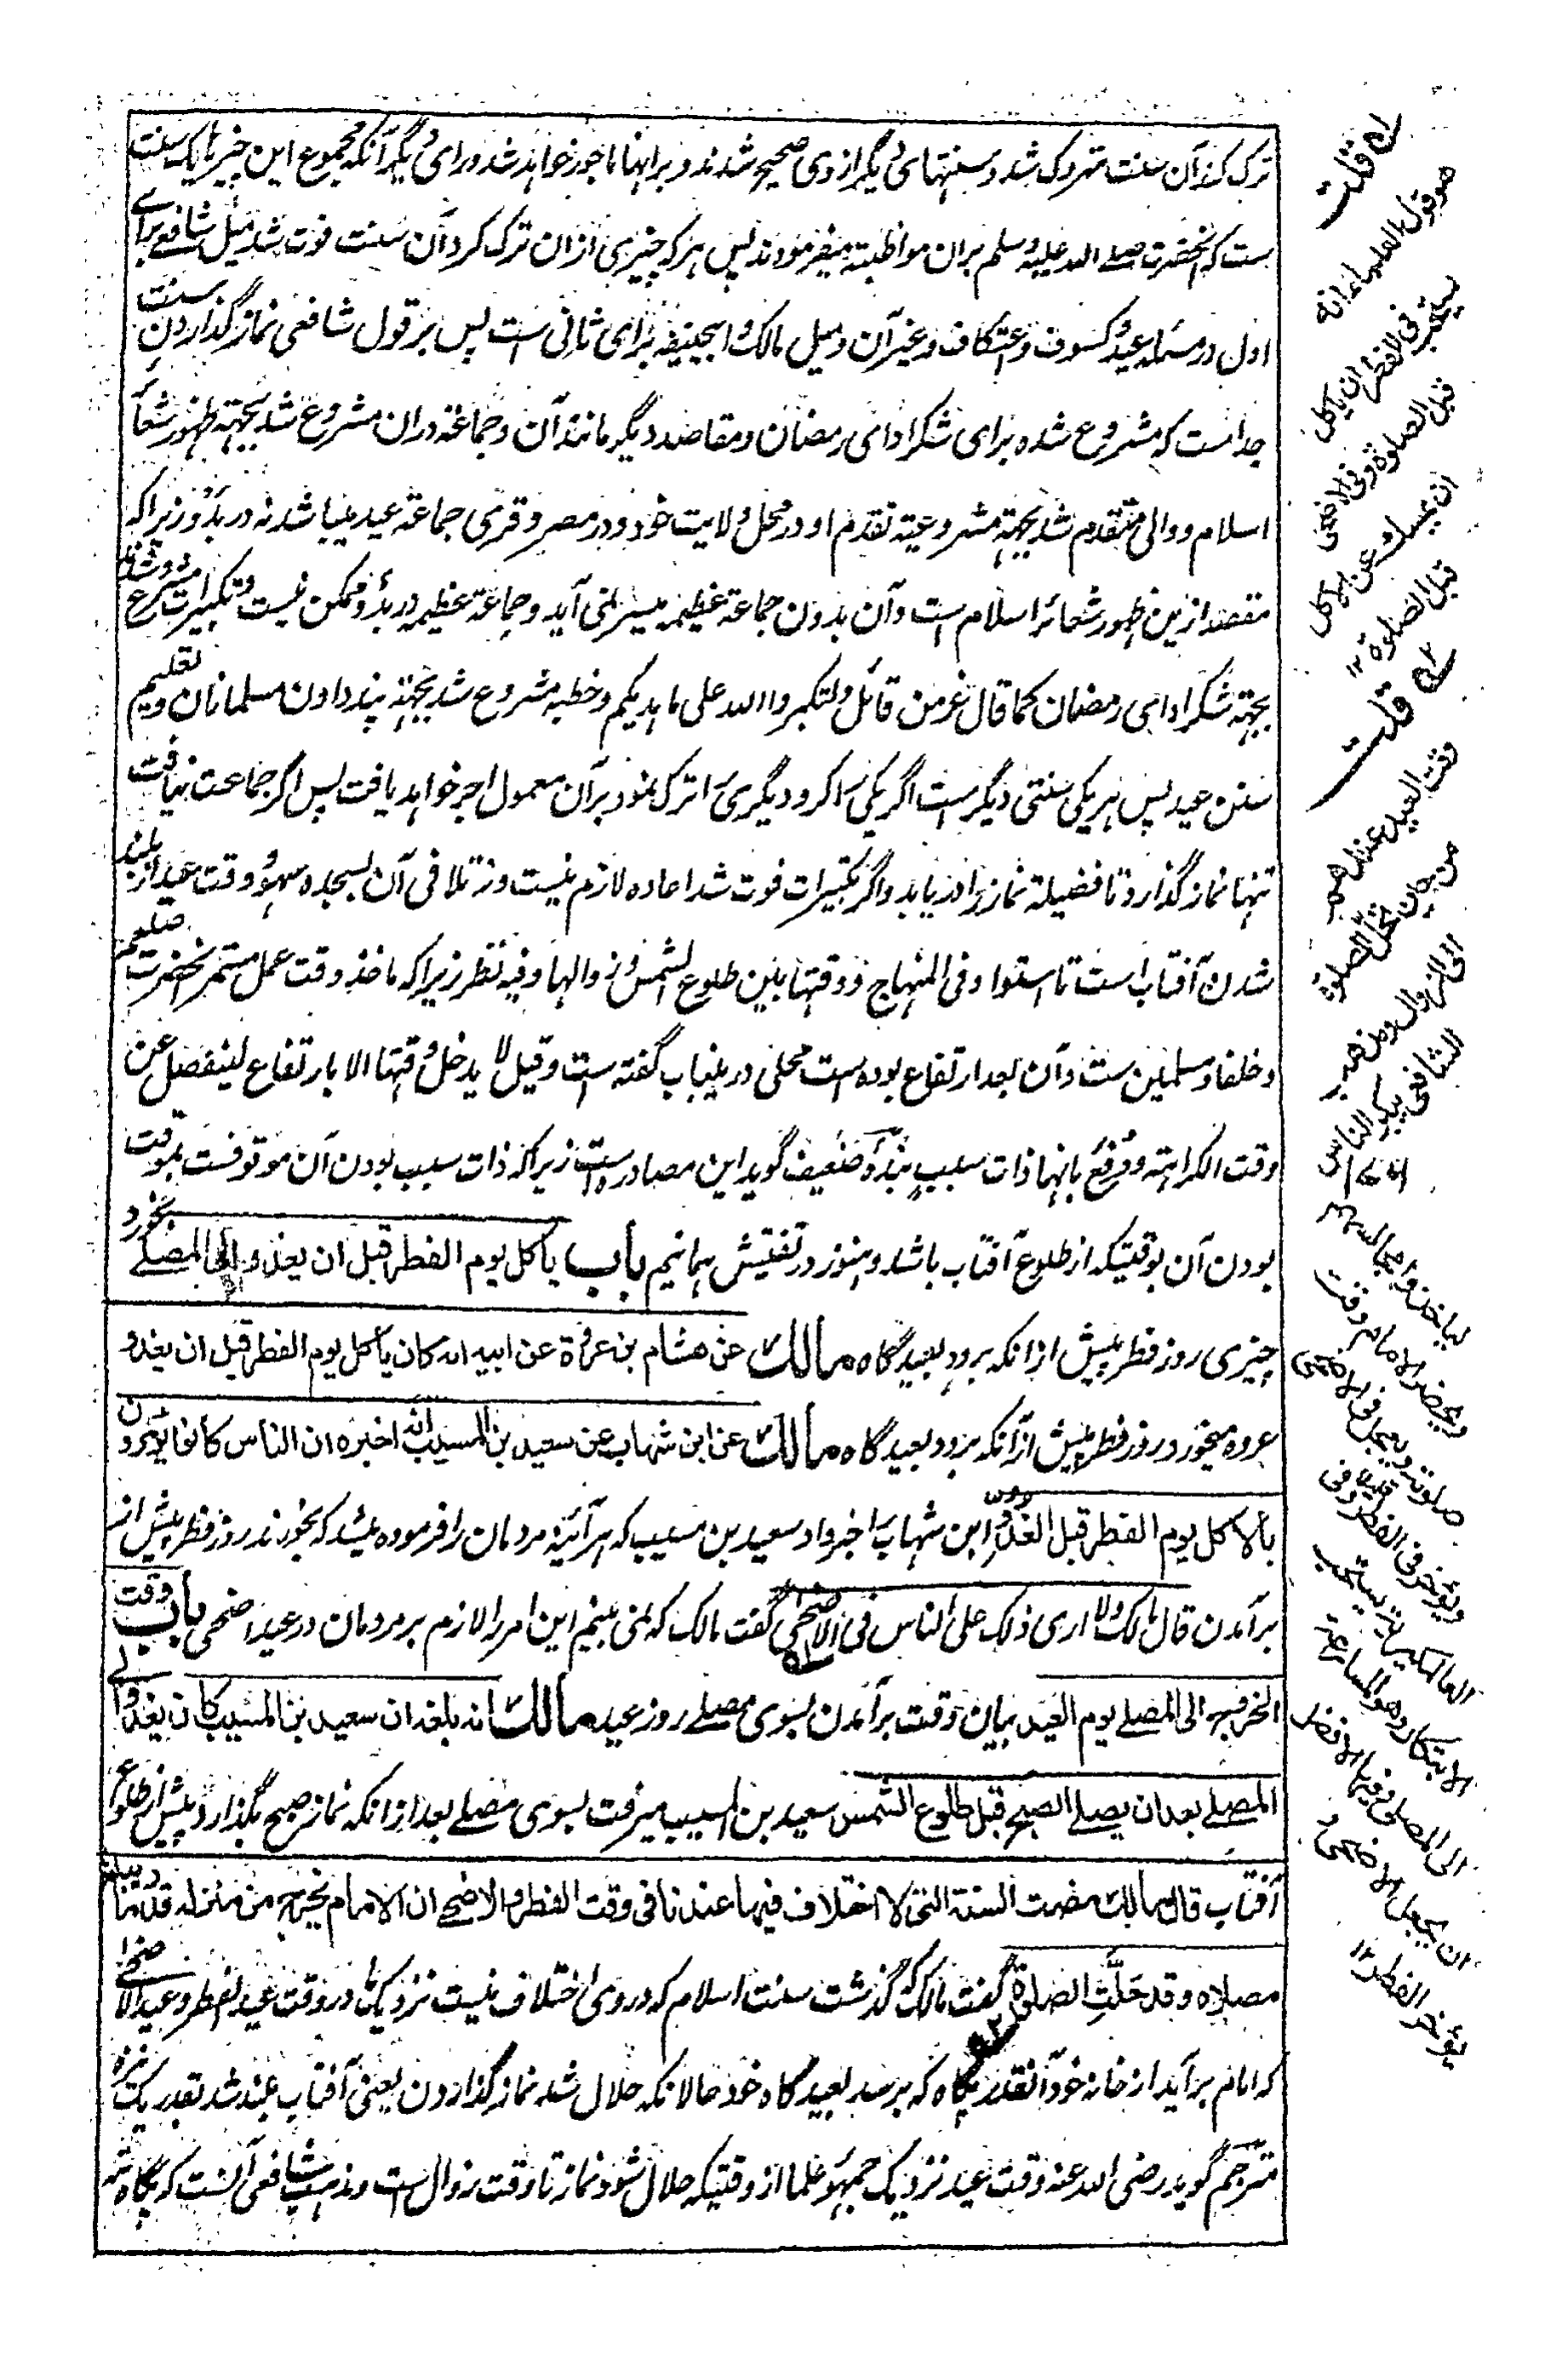 ترک کند آن سنت متروک شد و سنتهای دیگر از وی صحیح شدند و بر اینها ماجور خواهد شد و رای دیگر آنکه مجموع این چیز یا یک سنت
ست که آنحضرت صلے الله علیه وسلم بران مواظبته میفرمودند پس هر که چیزی ازان ترک کرد آن سنت فوت شد میل شافعے برای
اول در مسئله عید و کسوف و اعتکاف و غیر آن و میل مالک و ابیحنیفه برای ثانی است پس بر قول شافعی نماز گذاردن سنت
جداست که مشروع شده برای شکر ادای رمضان و مقاصد دیگر مانند آن و جماعة دران مشروع شد بجهته ظهور شعائر
اسلام و والی متقدم شد بجهته مشروعیته تقدم او در محل ولایت خود و در مصر و قری جماعة عید بنیا شد نه در بدو زیراکه
مقصد ازین ظهور شعائر اسلام است و آن بدون جماعة عظیمه میسر نمی آید و جماعة عظیمه در بدو ممکن نیست و تکبیرات مشروع شد
بجهته شکر ادای رمضان کما قال عز من قائل ولتکبروا الله علی ما هدیکم و خطبه مشروع شد بجهته پند دادن مسلمانان و تعلیم
سنن عید پس هر یکی سنتی دیگرست اگر یکی را کرد و دیگری را ترک نمود بر آن معمول اجر خواهد یافت پس اگر جماعت نیافت
تنها نماز گذارد تا فضیلة نماز را دریابد و اگر تکبیرات فوت شد اعاده لازم نیست و نه تلافی آن بسجده سهو و وقت عید از بلند
شدن آفتاب است تا استوا و فی المنهاج ووقتها بین طلوع الشمس و زوالها وفیه نظر زیراکه ماخذ وقت عمل مستمر آنحضرت صلعم
و خلفا و مسلمین ست و آن بعد ارتفاع بوده است محلی درینباب گفته است وقیل لا یدخل وقتها الا بارتفاع لینفصل عن
وقت الکراهته ودفع بانها ذات سبب بنده ضعیف گوید این مصادره است زیراکه ذات سبب بودن آن موقوفست بموقت
بودن آن بوقتیکه از طلوع آفتاب باشد و هنوز در تفتیش همانیم باب یاکل یوم الفطر قبل ان یغدو الی المصلے بخورد
چیزی روز فطر پیش ازانکه برود بعیدگاه مالک عن هشام بن عروة عن ابیه انه کان یاکل یوم الفطر قبل ان یغدو
عروه میخورد روز فطر پیش ازآنکه برود بعیدگاه مالک عن ابن شهاب عن سعید بن المسیب انه اخبره ان الناس کانوا یؤمرون
بالاکل یوم الفطر قبل الغدو ابن شهاب را خبر داد سعید بن مسیب که هر آئینه مردمان را فرموده میشد که بخورند روز فطر پیش از
برآمدن قال مالک ولا اری ذلک علی الناس فی الاضحی گفت مالک که نمی بینم این امر را لازم بر مردمان در عید اضحی باب وقت
الخروج الی المصلے یوم العید بیان وقت برآمدن بسوی مصلے روز عید مالک انه بلغه ان سعید بن المسیب کان یغدو الی
المصلے بعد ان یصلے الصبح قبل طلوع الشمس سعید بن المسیب میرفت بسوی مصلے بعد ازانکه نماز صبح بگذارد پیش از طلوع
آفتاب قال مالک مضت السنة التی لا اختلاف فیها عندنا فی وقت الفطر والاضحے ان الامام یخرج من منزله قدر ما یبلغ
مصلاه وقد حلّت الصلوة گفت مالک گذشت سنت اسلام که در وی اختلاف نیست نزدیک ما در وقت عید الفطر و عید الاضحے
که امام برآید از خانه خود آنقدر پگاه که برسد بعیدگاه خود حالانکه حلال شد نماز گذاردن یعنی آفتاب بلند شد بقدر یک نیزه
مترجم گوید رضی الله عنه وقت عید نزدیک جمهور علما از وقتیکه حلال شود نماز تا وقت زوال است و مذهب شافعی آنست که پگاه
له قلت
هو قول العلماء انه
یستحب فی الفطر ان یاکل
قبل الصلوة وفی الاضحی
ان یمسک عن الاکل
قبل الصلوة ١٢
٢ه قلت
وقت العید عندهم
من حین تحل الصلوة
الی الزوال ومذهب
الشافعی یبکر الناس
لیاخذوا مجالسهم
ویحضر الامام وقت
صلوته ویعجل فی الاضحی
ویؤخر فی الفطر قلیلا وفی
العالمکیریة یستحب
الابتکار وهو المسارعة
الی المصلی وفیها الافضل
ان یعجل الاضحی و
یؤخر الفطر ١٢